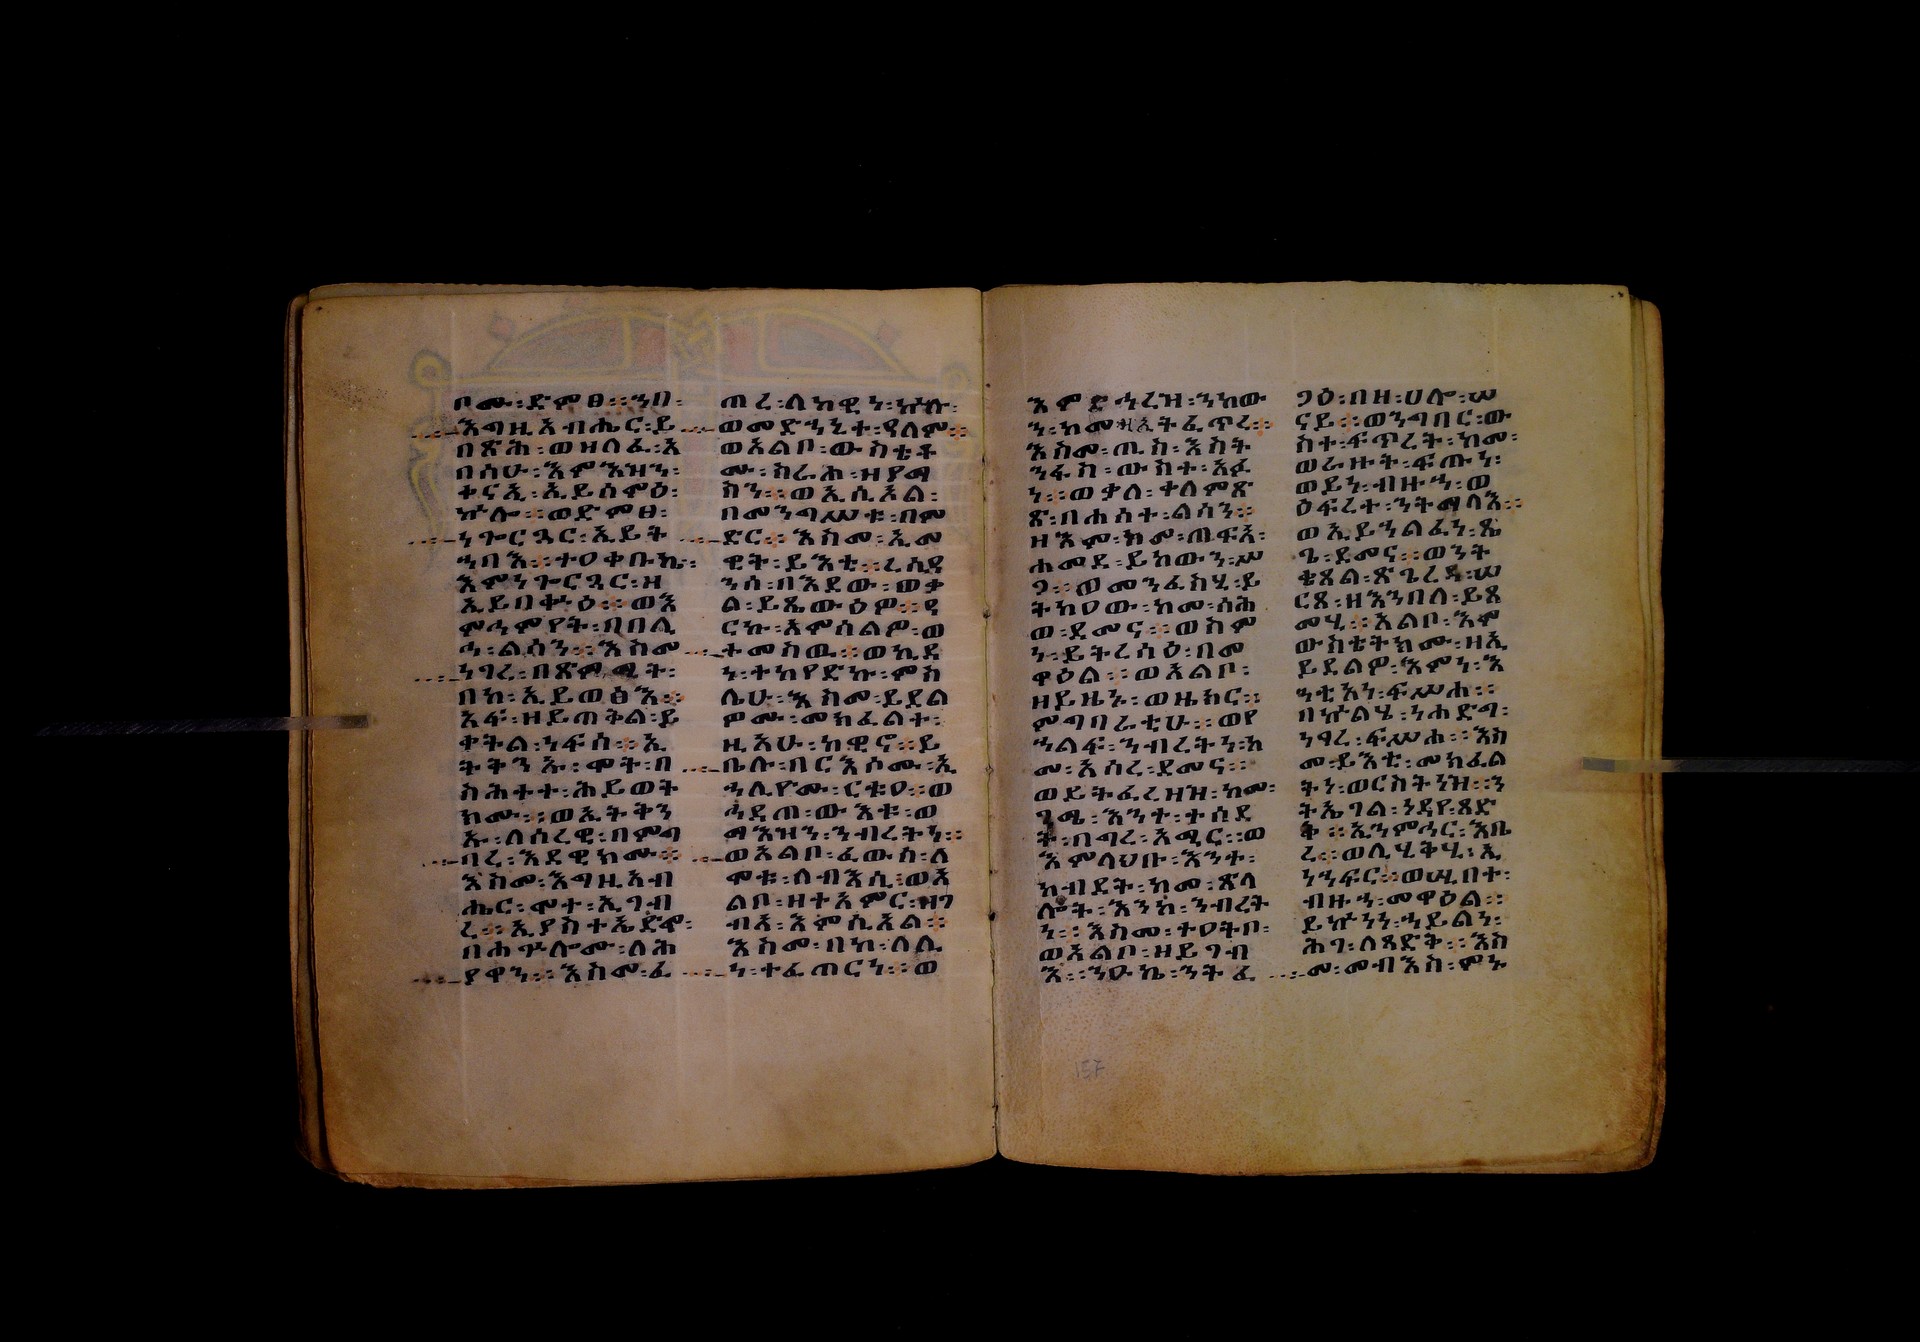 ቦሙ፡ድምፀ፡፡ኀበ፡
እግዚአብሔር፡ይ
በጽሕ፡ወዘለፈ፡አ
በሳሁ፡እምእዝን፡
ተናኢ፡ኢይሰምዕ፡
ኵሎ፡፡ወድምፀ፡
ነጐርጓር፡ኢይት
ኀባእ፡፡ተዐቀቡኬ፡
እምነጐርጓር፡ዘ
ኢይበቍዕ፡፡ወእ
ምሐምየት፡በበሊ
ሓ፡ልሳን፡፡እስመ
ነገረ፡በጽምሚት፡
በከ፡ኢይወፅእ፡፡
አፍ፡ዘይጠቅል፡ይ
ቀትል፡ነፍሰ፡፡ኢ
ትትኀኡ፡ሞት፡በ
ስሕተተ፡ሕይወት
ክሙ፡፡ወኢትትኀ
ኡ፡ለሰረዊ፡በምግ
ባረ፡እደዊክሙ፡፡
እስመ፡እግዚአብ
ሔር፡ሞተ፡ኢገብ
ረ፡፡ኢያስተኤድሞ፡
በሐጕሎሙ፡ለሕ
ያዋን፡፡እስመ፡ፈ
ጠረ፡ለከዊን፡ኵሉ፡
ወመድኀኒተ፡ዓለም፡፡
ወአልቦ፡ውስቴቶ
ሙ፡ሕራሕ፡ዘያማ
ስን፡፡ወኢሲኦል፡
በመንግሥቱ፡በም
ድር፡፡እስመ፡ኢመ
ዊት፡ይእቲ፡፡ረሲዓ
ንሰ፡በእደው፡ወቃ
ል፡ይጼውዕዎ፡፡ዓ
ርኩ፡አምሰልዎ፡ወ
ተመስዉ፡፡ወኪዳ
ነ፡ተከየድኩ፡ምስ
ሌሁ፡እስመ፡ይደል
ዎሙ፡መክፈልተ፡
ዚአሁ፡ከዊኖ፡፡ይ
ቤሉ፡በርእሶሙ፡ኢ
ኀሊዮሙ፡ርቱዐ፡፡ወ
ሕዳጠ፡ውእቱ፡ወ
ማእዝን፡ንብረትነ፡፡
ወአልቦ፡ፈውስ፡ለ
ሞቱ፡ለብእሲ፡ወአ
ልቦ፡ዘተአምር፡ዝገ
ብአ፡እምሲኦል፡፡
እስመ፡በከ፡ለሊ
ነ፡ተፈጠርነ፡፡ወ
እምድኅረዝ፡ንከው
ን፡ከመ፡ዘኢተፈጥረ፡፡
እስመ፡ጢስ፡እስት
ንፋስ፡ውስተ፡አፈ
ነ፡፡ወቃለ፡ቀለምጽ
ጽ፡በሐሰተ፡ልሳን፡፡
ዘእም፡ከመ፡ጠፍአ፡
ሐመደ፡ይከውን፡ሥ
ጋ፡፡ወመንፈስሂ፡ይ
ትከዐው፡ከመ፡ሰሕ
ወ፡ደመና፡፡ወስም
ነ፡ይትረሳዕ፡በመ
ዋዕል፡፡ወአልቦ፡
ዘይዜኑ፡ወዜከር፡፡
ምግባራቲሁ፡፡ወየ
ኀልፍ፡ንብረትነ፡ከ
መ፡አሰረ፡ደመና፡፡
ወይትፈረዝዝ፡ከመ፡
ጊሜ፡እንተ፡ተሰደ
ት፡በግረ፡አሚር፡፡ወ
እምላህቡ፡እንተ፡
ከብደት፡ከመ፡ጽላ
ሎት፡እንከ፡ንብረት
ነ፡፡እስመ፡ተዐትቦ፡
ወአልቦ፡ዘይገብ
እ፡፡ንዑኬ፡ንትፈ
ጋዕ፡በዘ፡ሀሎ፡ሠ
ናይ፡፡ወንግበር፡ው
ስተ፡ፍጥረት፡ከመ፡
ወራዙት፡ፍጡነ፡
ወይነ፡ብዙኀ፡ወ
ዕፍረተ፡ንትማላእ፡፡
ወኢይኀልፈነ፡ጼ
ጌ፡ደመና፡፡ወንት
ቄጸል፡ጽጌረዳ፡ሠ
ርጸ፡ዘእንበለ፡ይጸ
መሂ፡፡አልቦ፡እም
ውስቴትክሙ፡ዘኢ
ይደልዎ፡እምነ፡እ
ኅቲአነ፡ፍሥሐ፡፡
በኵልሄ፡ነሐድግ፡
ነገረ፡ፍሥሐ፡፡እስ
መ፡ይእቲ፡መክፈል
ትነ፡ወርስትነዝ፡፡ን
ትኤገል፡ነዳየ፡ጻድ
ቅ፡፡ኢንምሐር፡እቤ
ረ፡፡ወሊሂቅሂ፡ኢ
ነኀፍር፡፡ወሢበተ፡
ብዙኀ፡መዋዕል፡፡
ይኵነነ፡ኀይልነ፡
ሕገ፡ለጻድቅ፡፡እስ
መ፡መብእስ፡ምኑ
157